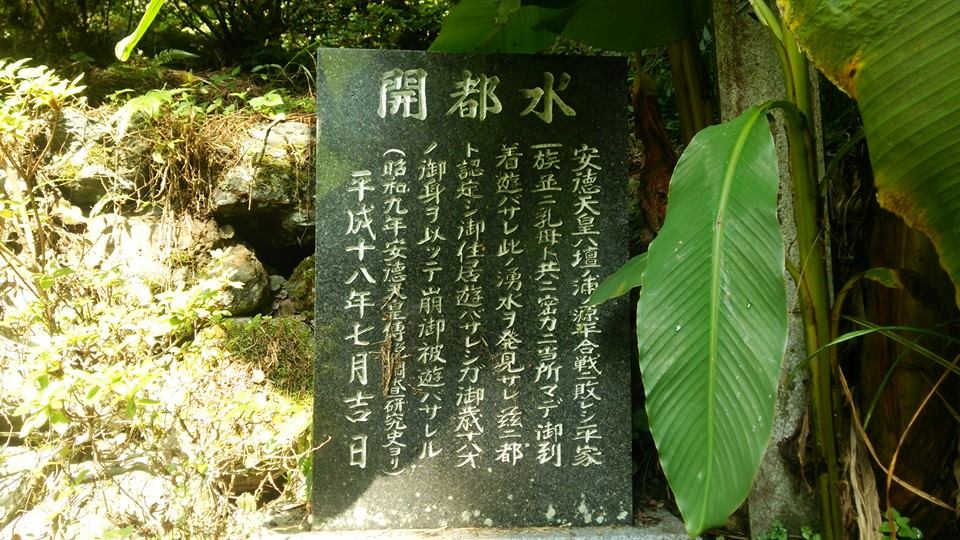 水都開
安徳天皇ハ壇ノ浦ノ源平合戦ニ敗レシ平家
一族並ニ乳母ト共ニ密カニ当所マデ御到
着遊バサレ此ノ湧水ヲ発見サレ茲ニ都
ト認定シ御住居遊バサレシガ御歳十八才
ノ御身ヲ以ッテ崩御被遊バサレル
(昭和九年安徳天皇傳 調査研究史ヨリ)
平成十八年七月吉日